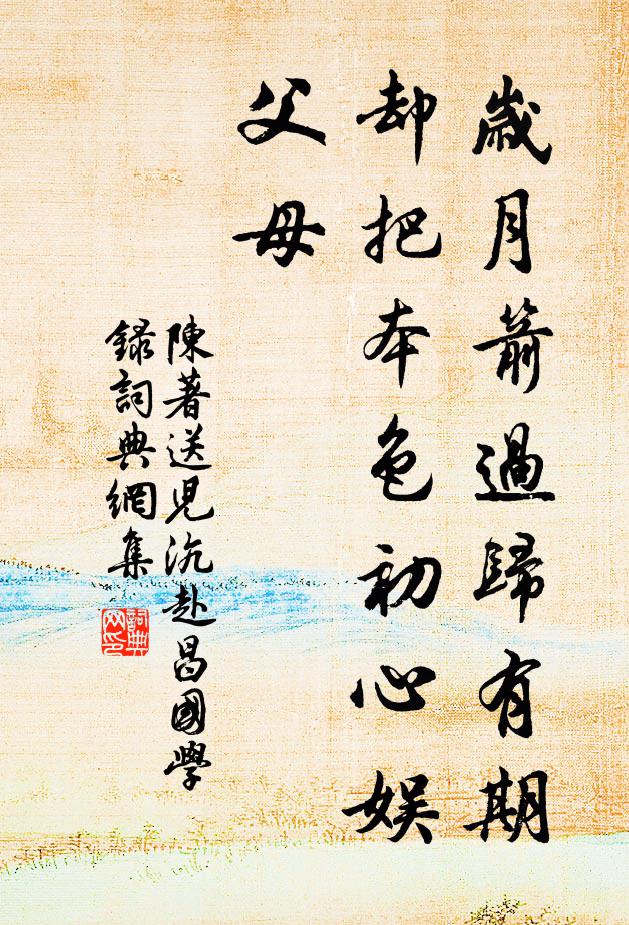 歲月箭過歸有期
却把本色初心娛
父母
陳著送児沆赴昌國學
錄詞典網集
詞典
网印